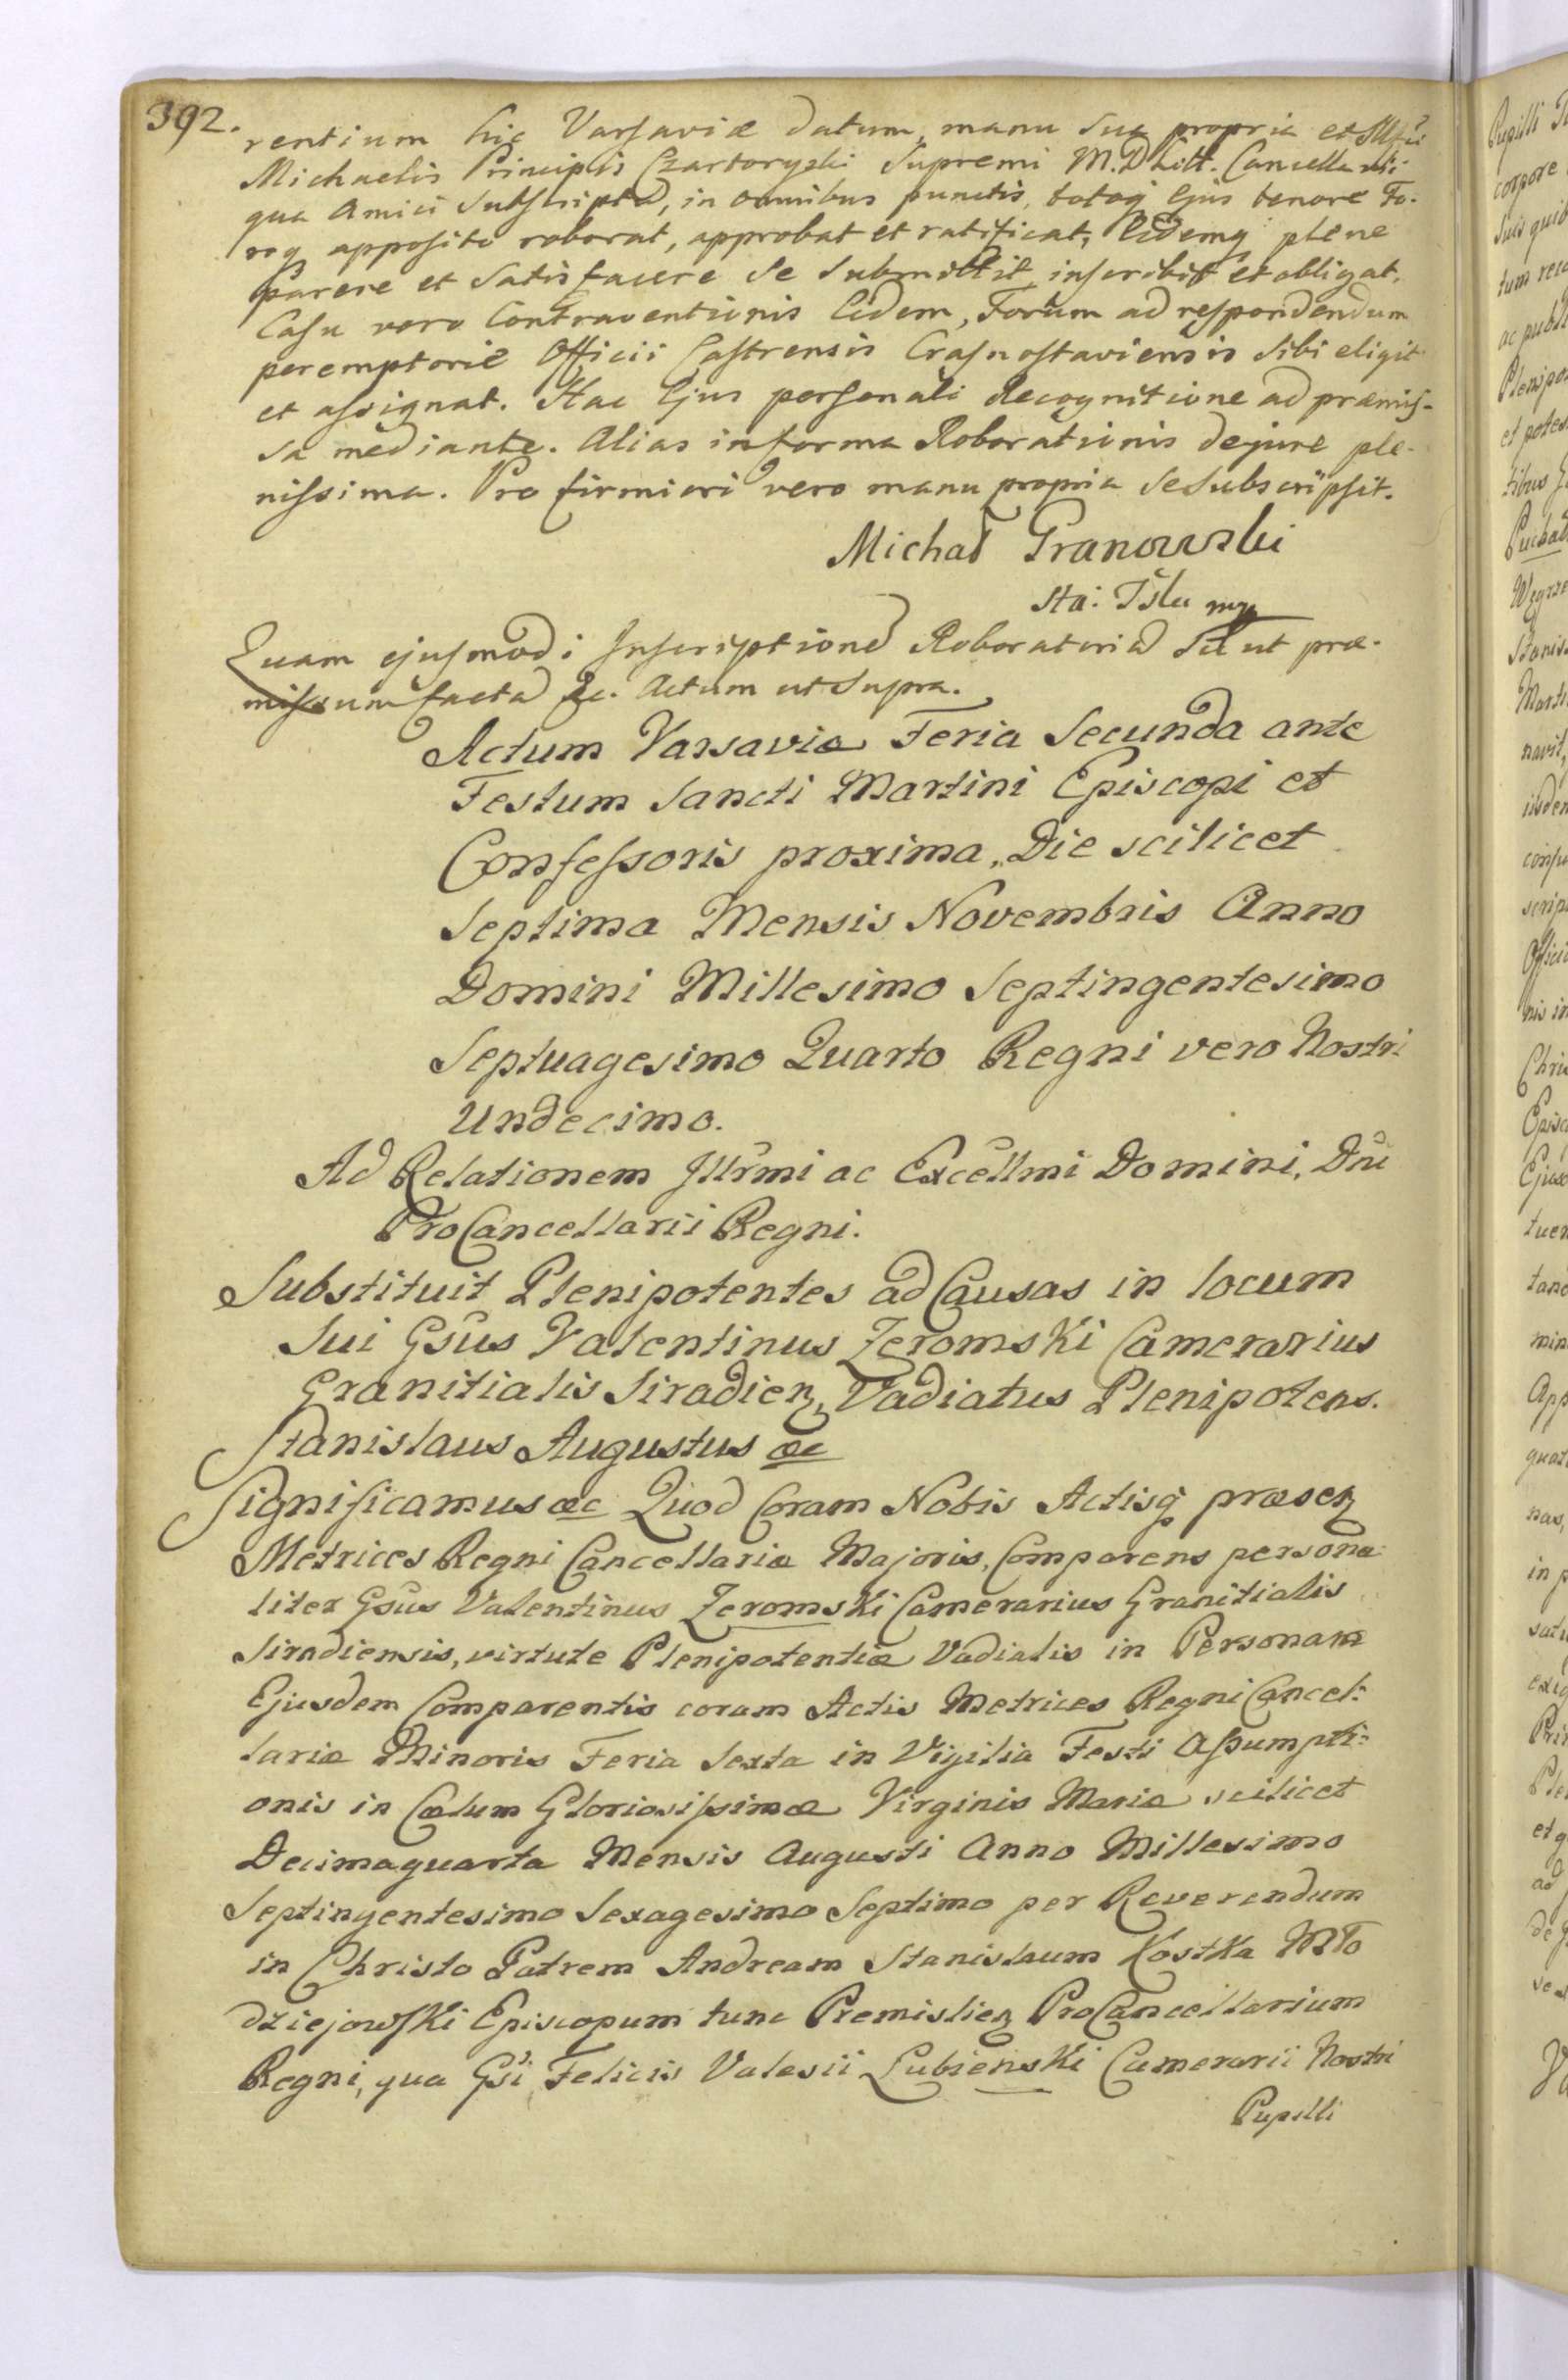 392.
rentium hic Varsaviæ datum, manu sua propria et Illmi
Michaelis Principis Czartoryski Supremi M.D Litt. Cancellarii
qua Amici Subscripta, in omnibus punctis, totoq ejus tenore Fo-
roq apposito roborat, approbat et ratificat, Eidemq plene
parere et satisfacere se submittit, inscribit et obligat.
Casu vero Contraventionis Eidem, Forum ad respondendum
peremptorie Officii Castrensis Crasnostaviensis sibi eligit
et assignat. Hac Ejus personali Recognitione ad præmis-
sa mediante. Alias in forma Roborationis de jure ple-
nissima. Pro firmiori vero manu propria se subscripsit.
Michał Granowski
Sta: Tski mp
Quam ejusmodi Inscriptione Roboratoria sit ut præ-
missum facta &c. Actum ut supra.
Actum Varsaviæ Feria Secunda ante
Festum Sancti Martini Episcopi et
Confessoris proxima, Die scilicet
Septima Mensis Novembris Anno
Domini Millesimo Septingentesimo
Septuagesimo Quarto Regni vero Nostri
Undecimo.
Ad Relationem Illrmi ac Excellmi Domini, Dni
ProCancellarii Regni.
Substituit Plenipotentes ad Causas in locum
sui Gsus Valentinus Zeromski Camerarius
Granitialis Siradien, Vadiatus Plenipotens.
Stanislaus Augustus &c
Significamus &c Quod Coram Nobis Actisq præsen
Metrices Regni Cancellariæ Majoris, Comparens persona-
liter Gsus Valentinus Zeromski Camerarius Granitialis
Siradiensis, virtute Plenipotentiæ Vadialis in Personam
Ejusdem Comparentis coram Actis Metrices Regni Cancel:
lariæ Minoris Feria Sexta in Vigilia Festi Assumpti:
onis in Cælum Gloriosissimæ Virginis Mariæ scilicet
Decimaquarta Mensis Augusti Anno Millesimo
Septingentesimo Sexagesimo Septimo per Reverendum
in Christo Patrem Andream Stanislaum Kostka Mło
dziejowski Episcopum tunc Premislien ProCancellarium
Regni, qua Gsi Felicis Valesii Lubienski Camerarii Nostri
Pupilli